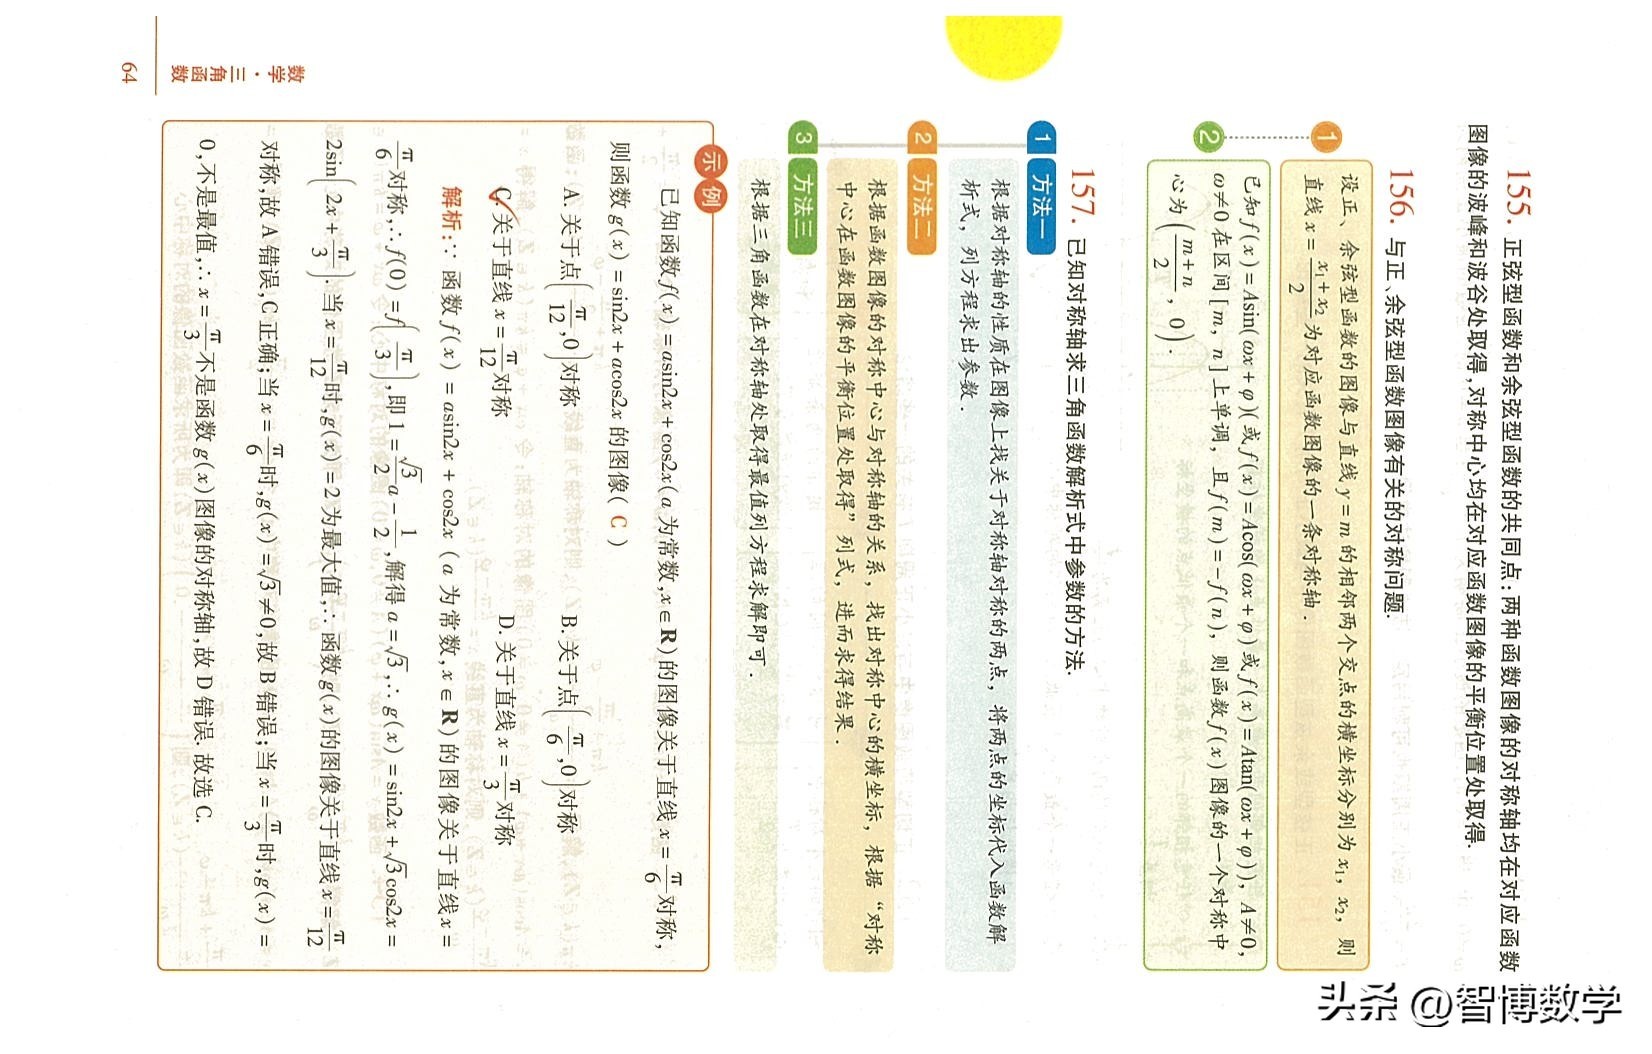 155. 正弦型函数和余弦型函数的共同点:两种函数图像的对称轴均在对应函数
图像的波峰和波谷处取得,对称中心均在对应函数图像的平衡位置处取得.
156. 与正、余弦型函数图像有关的对称问题.
1
设正、余弦型函数的图像与直线 y=m 的相邻两个交点的横坐标分别为 x₁, x₂, 则
直线 x=(x₁+x₂)/2 为对应函数图像的一条对称轴.
2
已知 f(x)=Asin(ωx+φ)(或 f(x)=Acos(ωx+φ)或 f(x)=Atan(ωx+φ)), A≠0,
ω≠0 在区间[m, n]上单调, 且 f(m)=-f(n), 则函数 f(x) 图像的一个对称中
心为((m+n)/2, 0).
157. 已知对称轴求三角函数解析式中参数的方法.
1 方法一
根据对称轴的性质在图像上找关于对称轴对称的两点, 将两点的坐标代入函数解
析式, 列方程求出参数.
2 方法二
根据函数图像的对称中心与对称轴的关系, 找出对称中心的横坐标, 根据“对称
中心在函数图像的平衡位置处取得”列式, 进而求得结果.
3 方法三
根据三角函数在对称轴处取得最值列方程求解即可.
示例
已知函数 f(x)=asin2x+cos2x(a 为常数,x∈R)的图像关于直线 x=π/6对称,
则函数 g(x)=sin2x+acos2x 的图像( C )
A. 关于点(π/12,0)对称 B. 关于点(π/6,0)对称
C. 关于直线 x=π/12对称 D. 关于直线 x=π/3对称
解析:∵ 函数 f(x)=asin2x+cos2x (a 为常数,x∈R)的图像关于直线 x=
π/6对称,∴ f(0)=f(π/3),即 1=√3/2a-1/2,解得 a=√3,∴ g(x)=sin2x+√3cos2x=
2sin(2x+π/3). 当 x=π/12时,g(x)=2 为最大值,∴ 函数 g(x)的图像关于直线 x=π/12
对称,故 A 错误,C 正确;当 x=π/6时,g(x)=√3≠0,故 B 错误;当 x=π/3时,g(x)=
0,不是最值,∴ x=π/3不是函数 g(x)图像的对称轴,故 D 错误. 故选 C.
数学·三角函数
64
头条 @智博数学